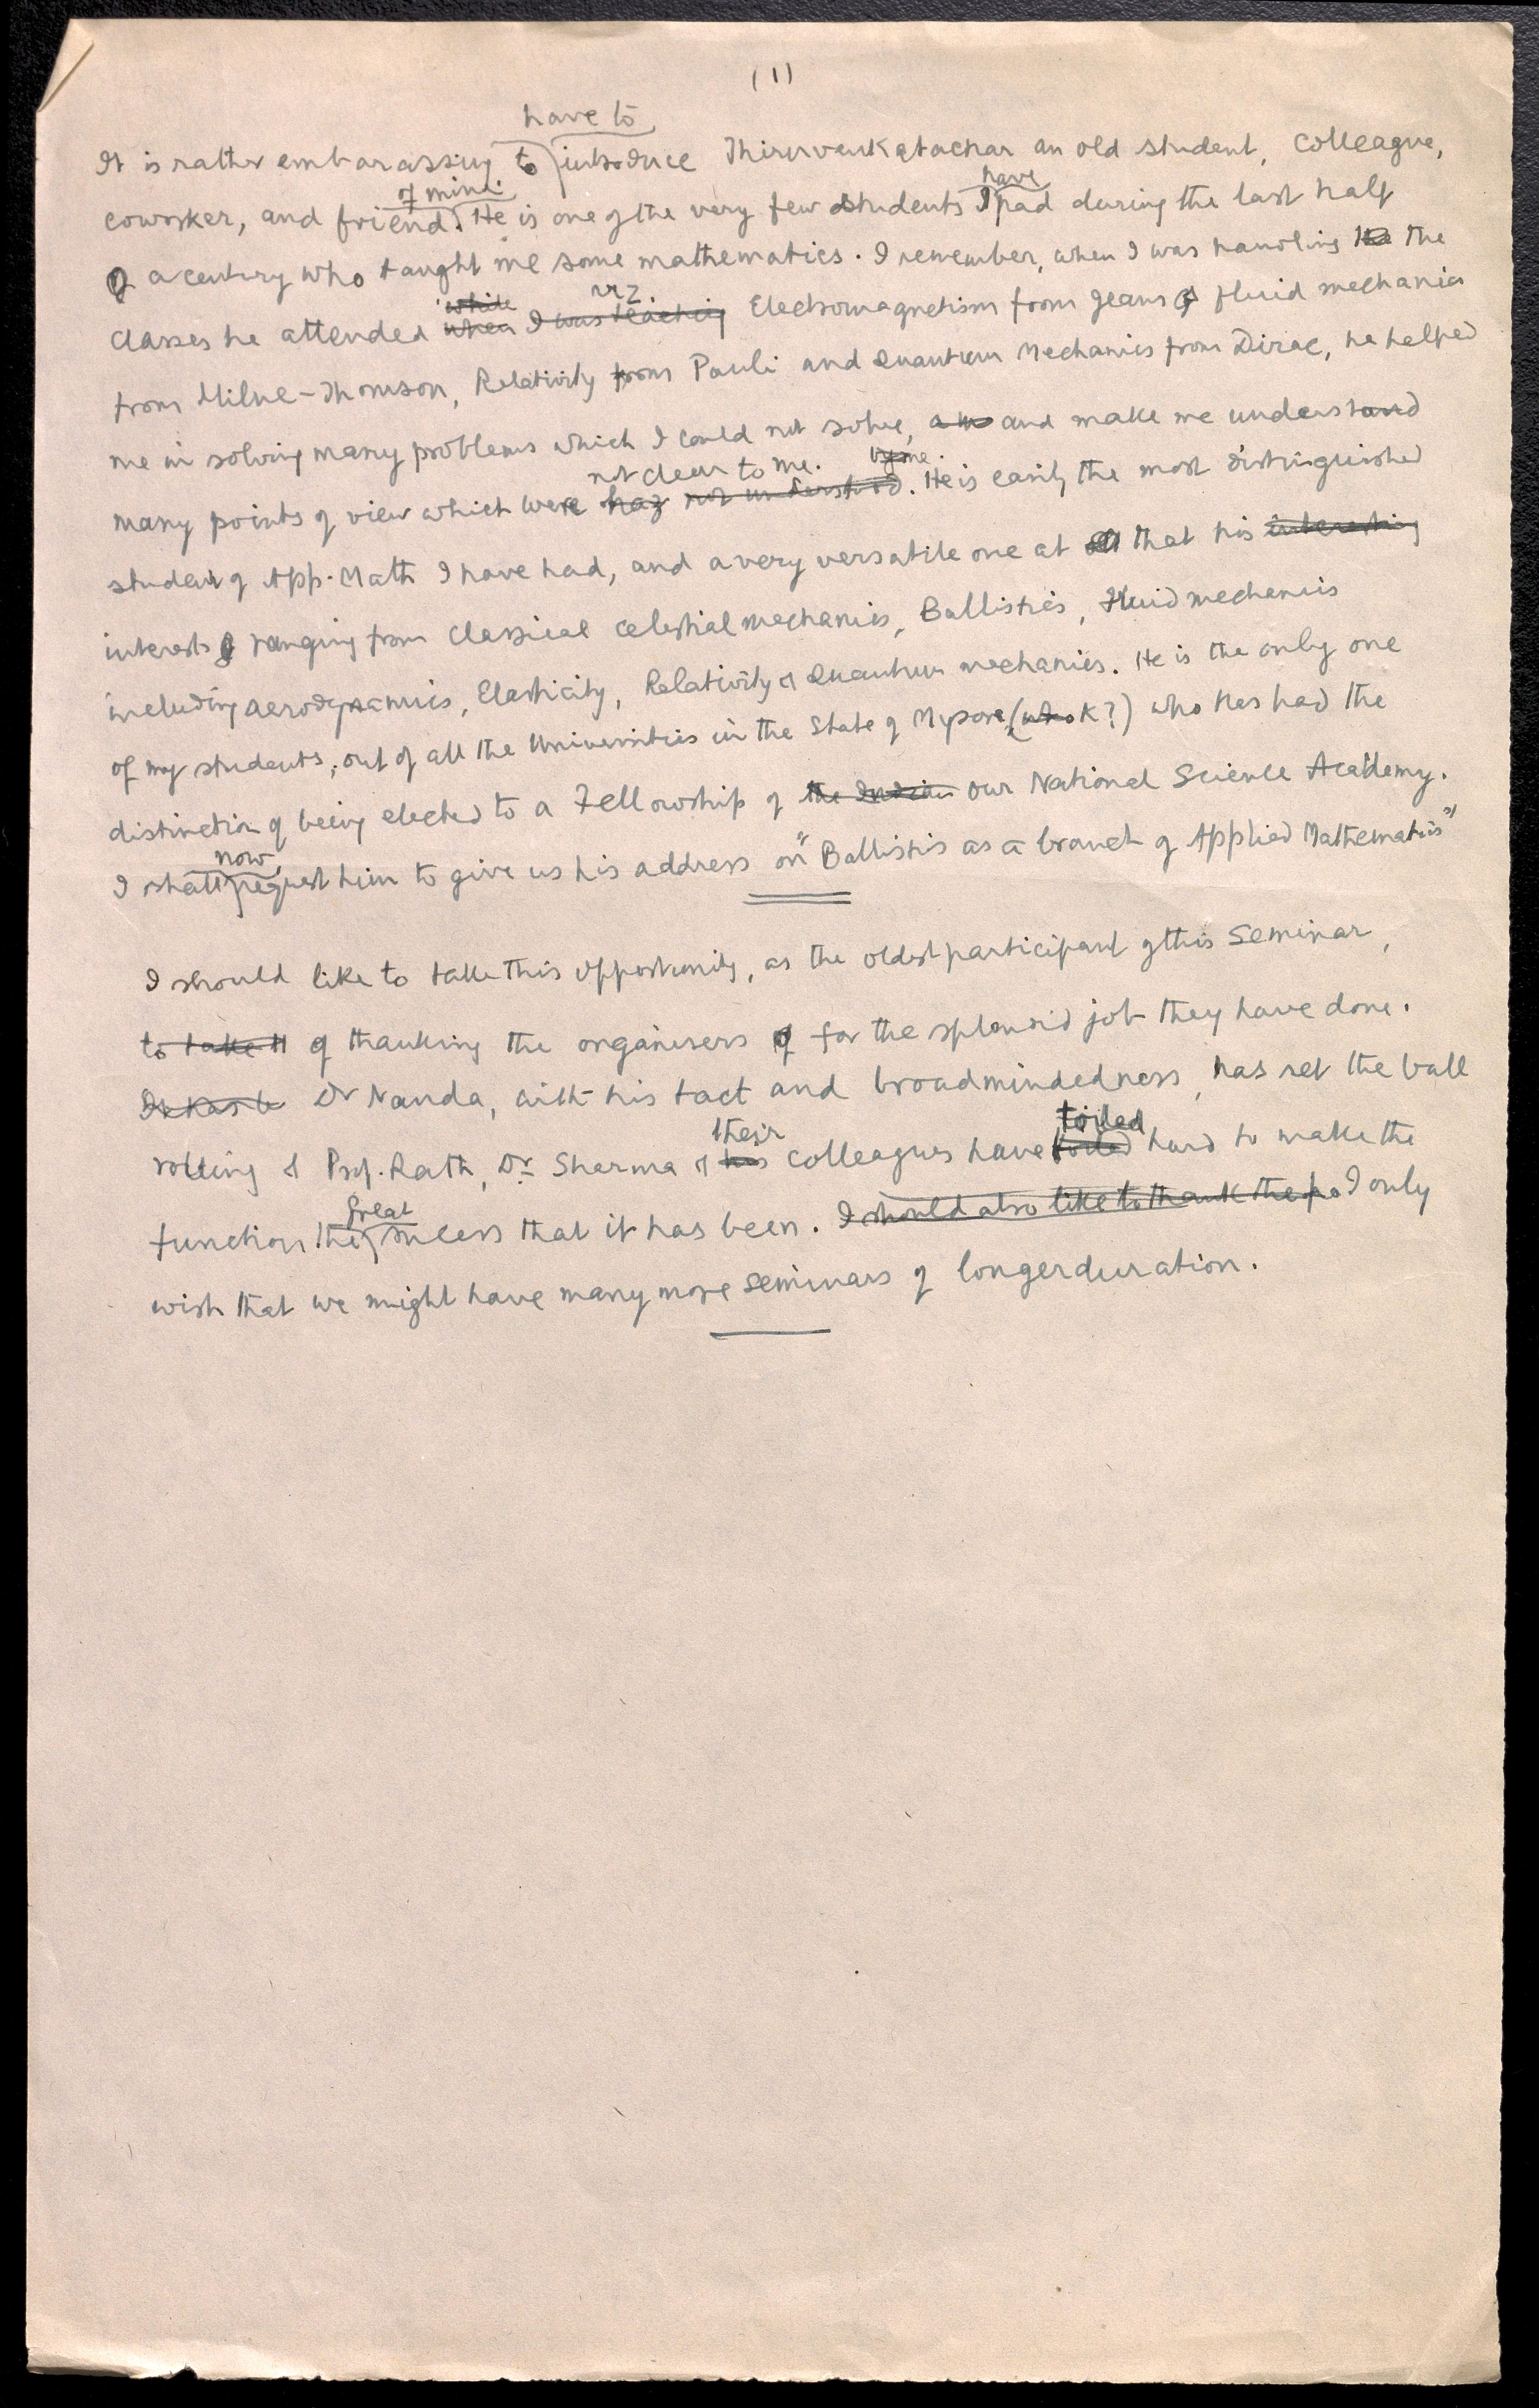 (1)
have to
It is rather embarassing to introduce Thiruvenkatachar an old student, colleague,
of mine. have
coworker, and friend. He is one of the very few students I had during the last half
of a century who taught me some mathematics. I remember, when I was handling the
while viz.
classes he attended when I was teaching Electromagnetism from Jeans & Fluid mechanics
from Milne-Thomson, Relativity from Pauli and Quantum Mechanics from Dirac, he helped
me in solving many problems which I could not solve, and make me understand
not clear to me. by me.
many points of view which were not understood. He is easily the most distinguished
student of App. Math I have had, and a very versatile one at that his interesting
interests ranging from classical celestial mechanics, Ballistics, Fluid mechanics
including aerodynamics, Elasticity, Relativity & Quantum mechanics. He is the only one
of my students, out of all the Universities in the State of Mysore (K?) who has had the
distinction of being elected to a Fellowship of the Indian our National Science Academy.
now
I shall request him to give us his address on "Ballistics as a branch of Applied Mathematics"
I should like to take this opportunity, as the oldest participant of this Seminar,
to take of thanking the organisers for the splendid job they have done.
Dr Nanda, with his tact and broadmindedness, has set the ball
their toiled
rolling & Prof. Rath, Dr Sharma & his colleagues have toiled hard to make the
great
function the success that it has been. I should also like to thank the I only
wish that we might have many more seminars of longer duration.